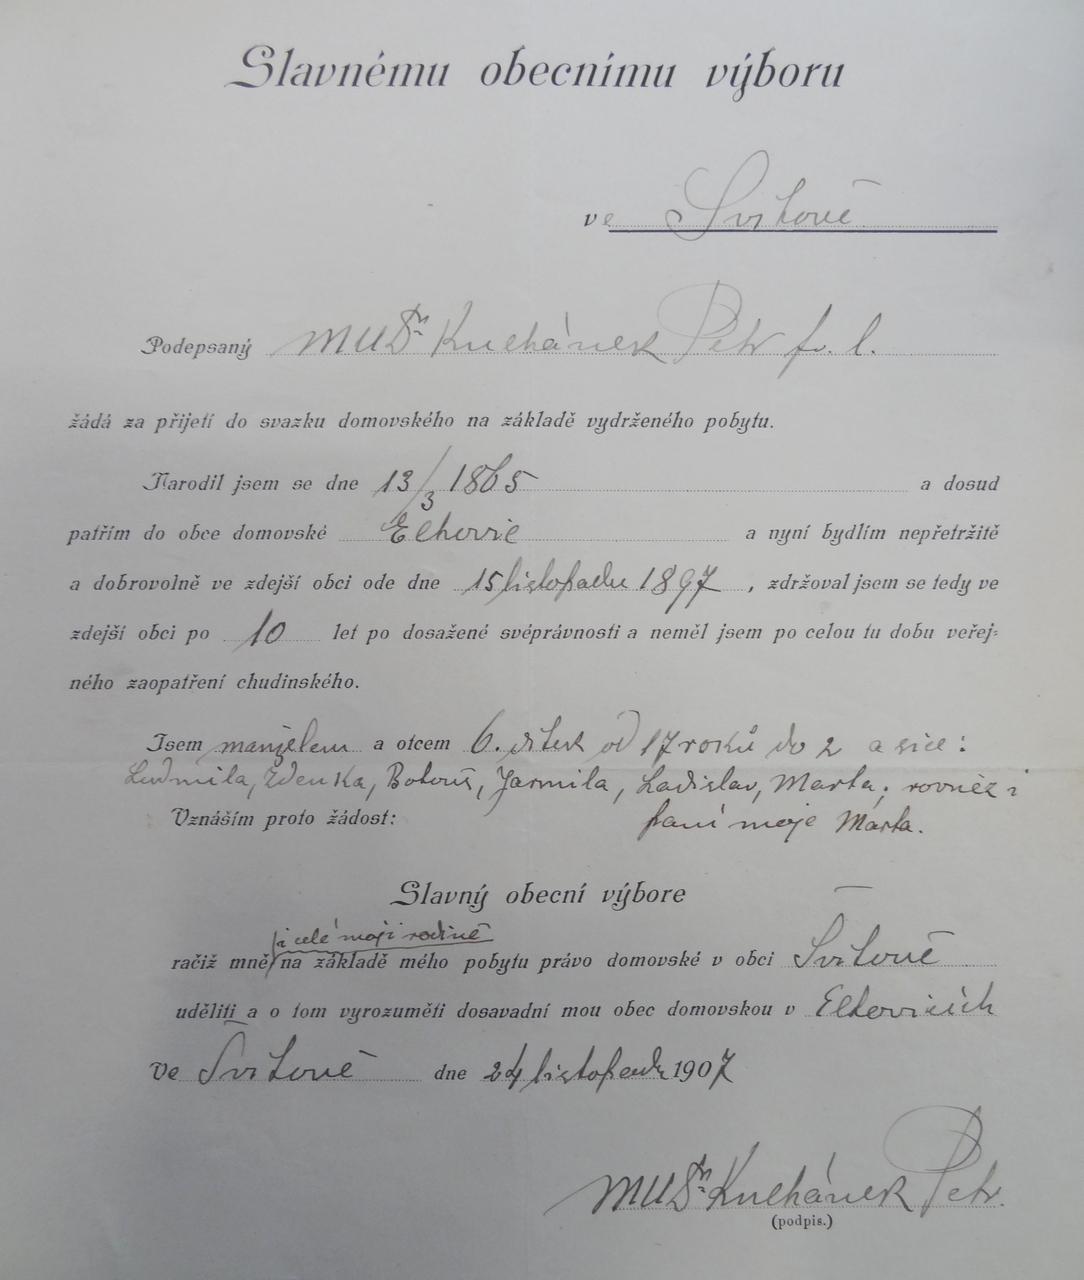 Slavnému obecnímu výboru
ve Svitově
Podepsaný MUDr Kuchánek Petr
žádá za přijetí do svazku domovského na základě vydrženého pobytu.
Narodil jsem se dne 13/3 1865 a dosud
patřím do obce domovské Elhovic a nyní bydlím nepřetržitě
a dobrovolně ve zdejší obci ode dne 15 listopadu 1897, zdržoval jsem se tedy ve
zdejší obci po 10 let po dosažené svéprávnosti a neměl jsem po celou tu dobu veřej-
ného zaopatření chudinského.
Jsem manželem a otcem 6. dítek od 17 roků do 2 a sice:
Ludmila, Zdenka, Bohouš, Jarmila, Ladislav, Marta; rovněž i
Vznáším proto žádost: paní moje Marta.
Slavný obecní výbore
i celé moji rodině
račiž mně na základě mého pobytu právo domovské v obci Svitově
uděliti a o tom vyrozuměti dosavadní mou obec domovskou v Elhovicích
Ve Svitově dne 24 listopadu 1907
MUDr Kuchánek Petr.
(podpis.)